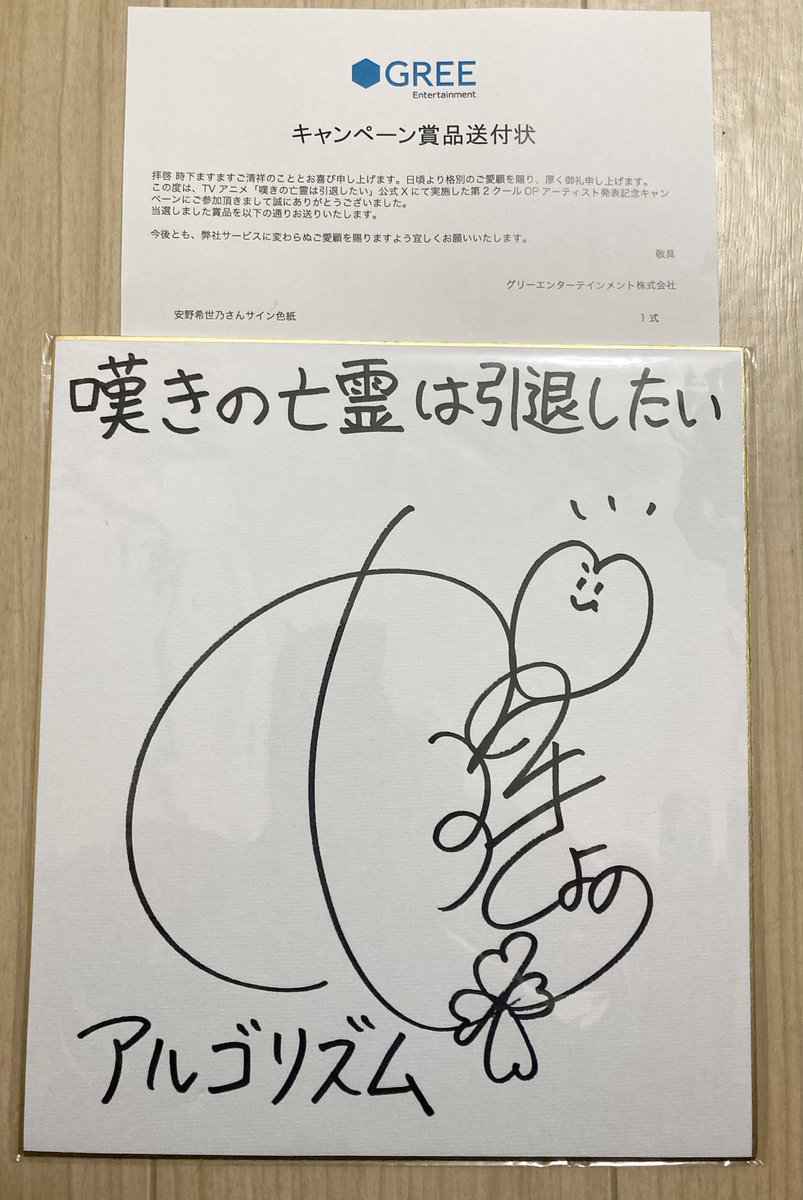 GREE
Entertainment
キャンペーン賞品送付状
拝啓 時下ますますご清祥のこととお喜び申し上げます。日頃より格別のご愛顧を賜り、厚く御礼申し上げます。
この度は、TVアニメ「嘆きの亡霊は引退したい」公式Xにて実施した第2クールOPアーティスト発表記念キャン
ペーンにご参加頂きまして誠にありがとうございました。
当選しました賞品を以下の通りお送りいたします。
今後とも、弊社サービスに変わらぬご愛顧を賜りますよう宜しくお願いいたします。
敬具
グリーエンターテインメント株式会社
安野希世乃さんサイン色紙 1式
嘆きの亡霊は引退したい
アルゴリズム